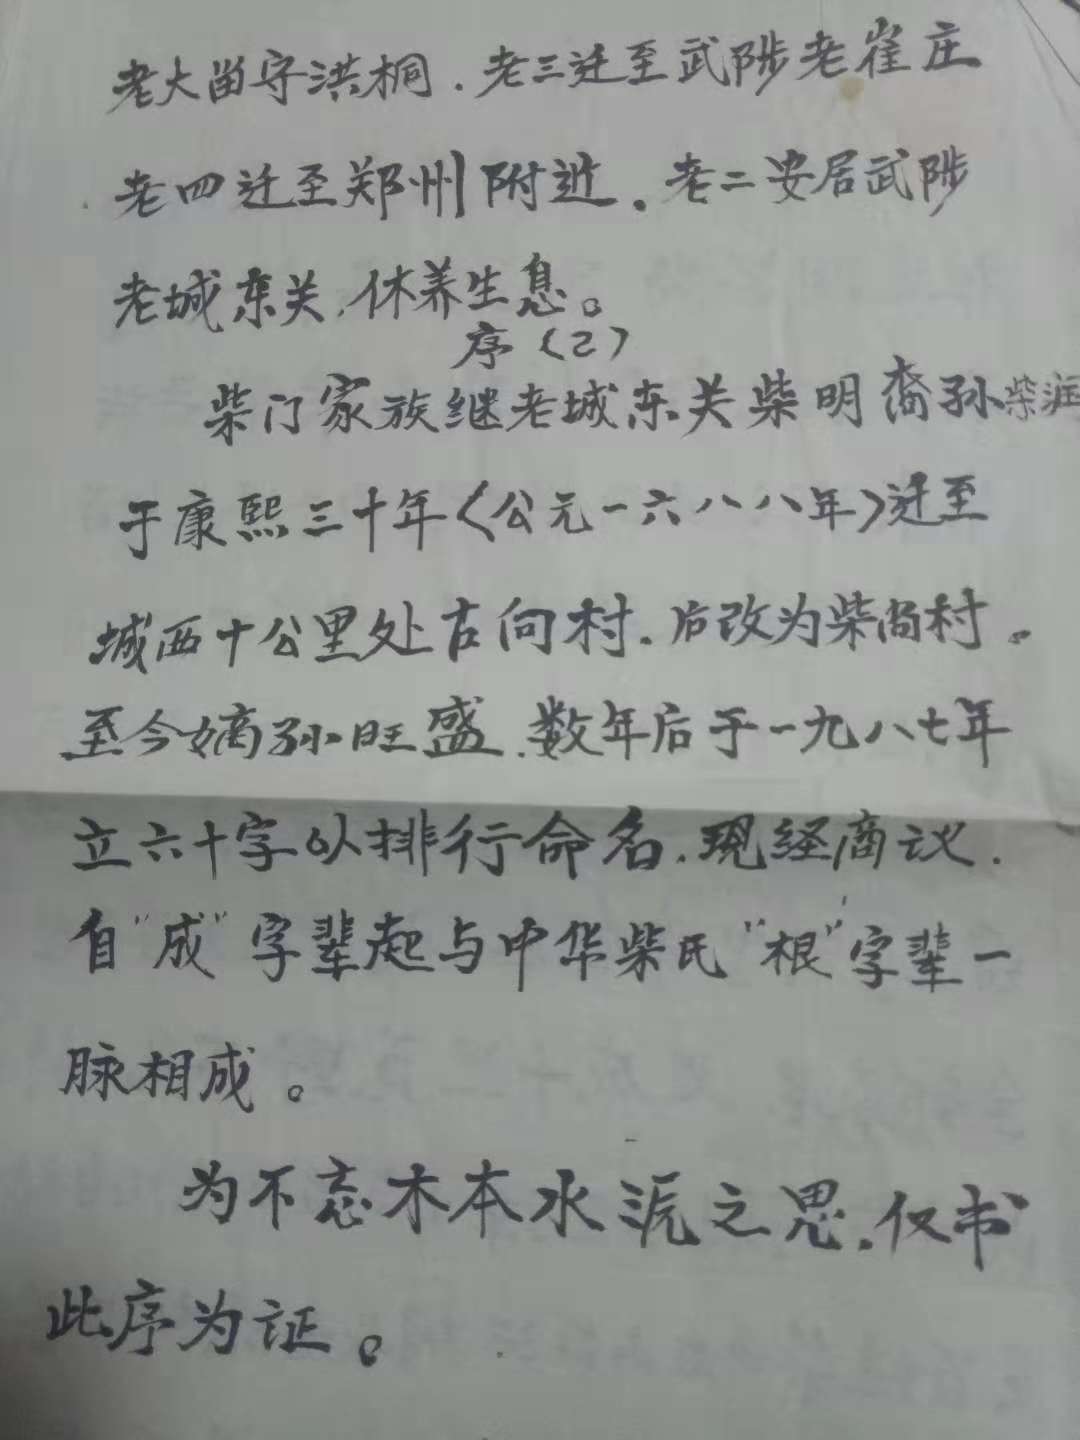 老大留守洪桐.老三迁至武陟老崔庄
老四迁至郑州附近.老二安居武陟
老城东关.休养生息。
序(2)
柴门家族继老城东关柴明裔孙柴润
于康熙三十年〈公元一六八八年〉迁至
城西十公里处古向村.后改为柴尚村。
至今嫡孙旺盛.数年后于一九八七年
立六十字以排行命名.现经商议.
自"成"字辈起与中华柴氏"根"字辈一
脉相成。
为不忘木本水源之思.仅书
此序为证。